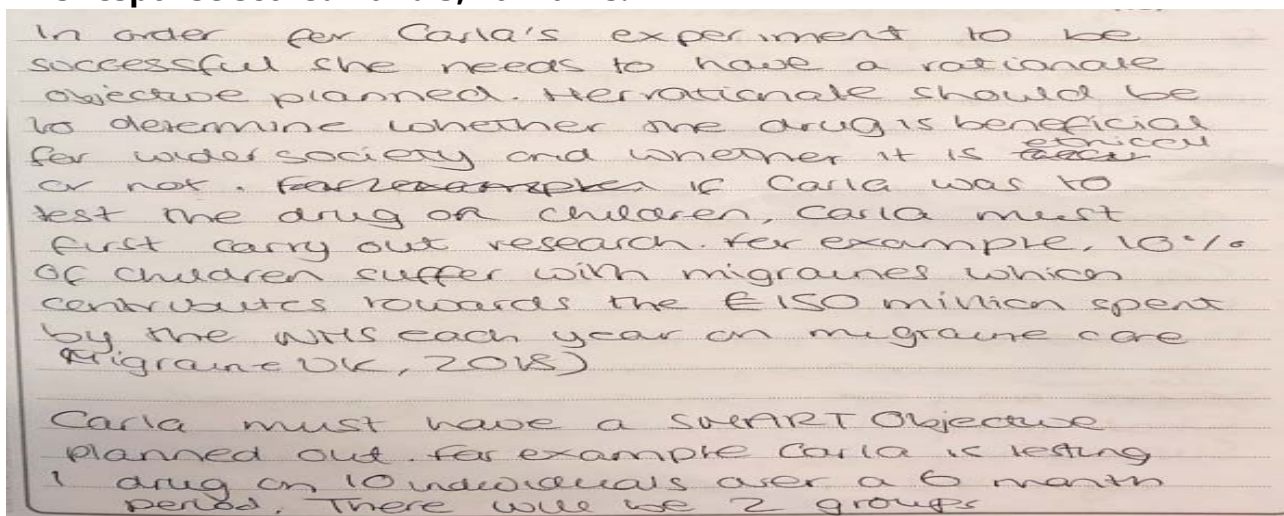 In order for Carla's experiment to be
successful she needs to have a rationale
objective planned. Her rationale should be
to determine whether the drug is beneficial
for wider society and whether it is ethical
or not. For example if Carla was to
test the drug on children, Carla must
first carry out research. For example, 10%
of children suffer with migraines which
contributes towards the £150 million spent
by the NHS each year on migraine care
Migraine UK, 2018)
Carla must have a SMART Objective
planned out. For example Carla is testing
1 drug on 10 individuals over a 6 month
period. There will be 2 groups